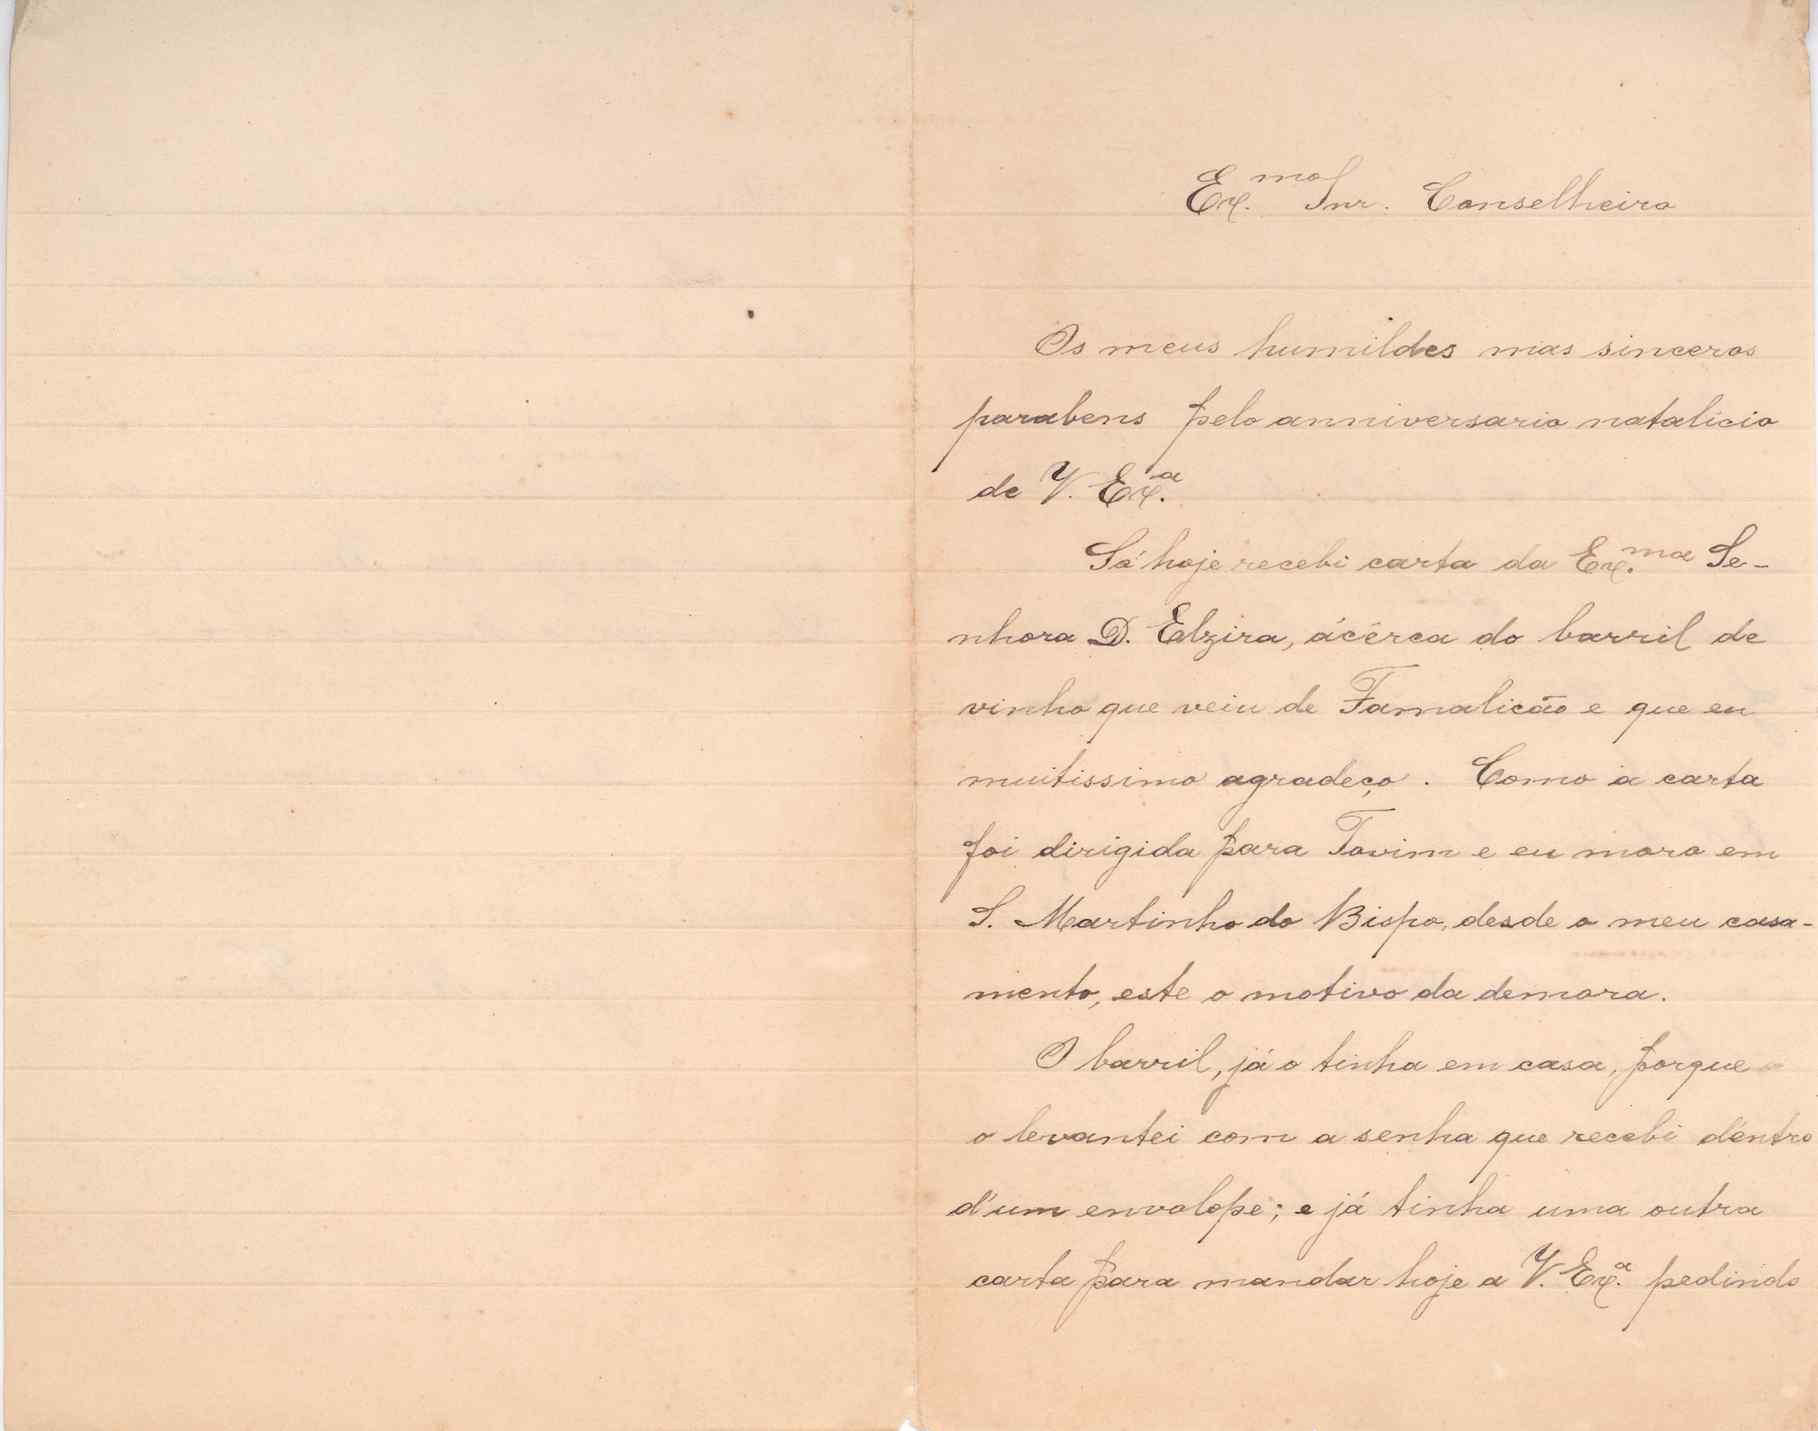 Ex.mo Snr. Conselheiro
Os meus humildes mas sinceros
parabens pelo anniversario natalicio
de V. Ex.a
Só hoje recebi carta da Ex.ma Se-
nhora D. Elzira, ácêrca do barril de
vinho que veiu de Famalicão e que eu
muitissimo agradeço. Como a carta
foi dirigida para Tovim e eu moro em
S. Martinho do Bispo, desde o meu casa-
mento, este o motivo da demora.
O barril, já o tinha em casa, porque
o levantei com a senha que recebi dentro
d'um envolope; e já tinha uma outra
carta para mandar hoje a V. Ex.a pedindo